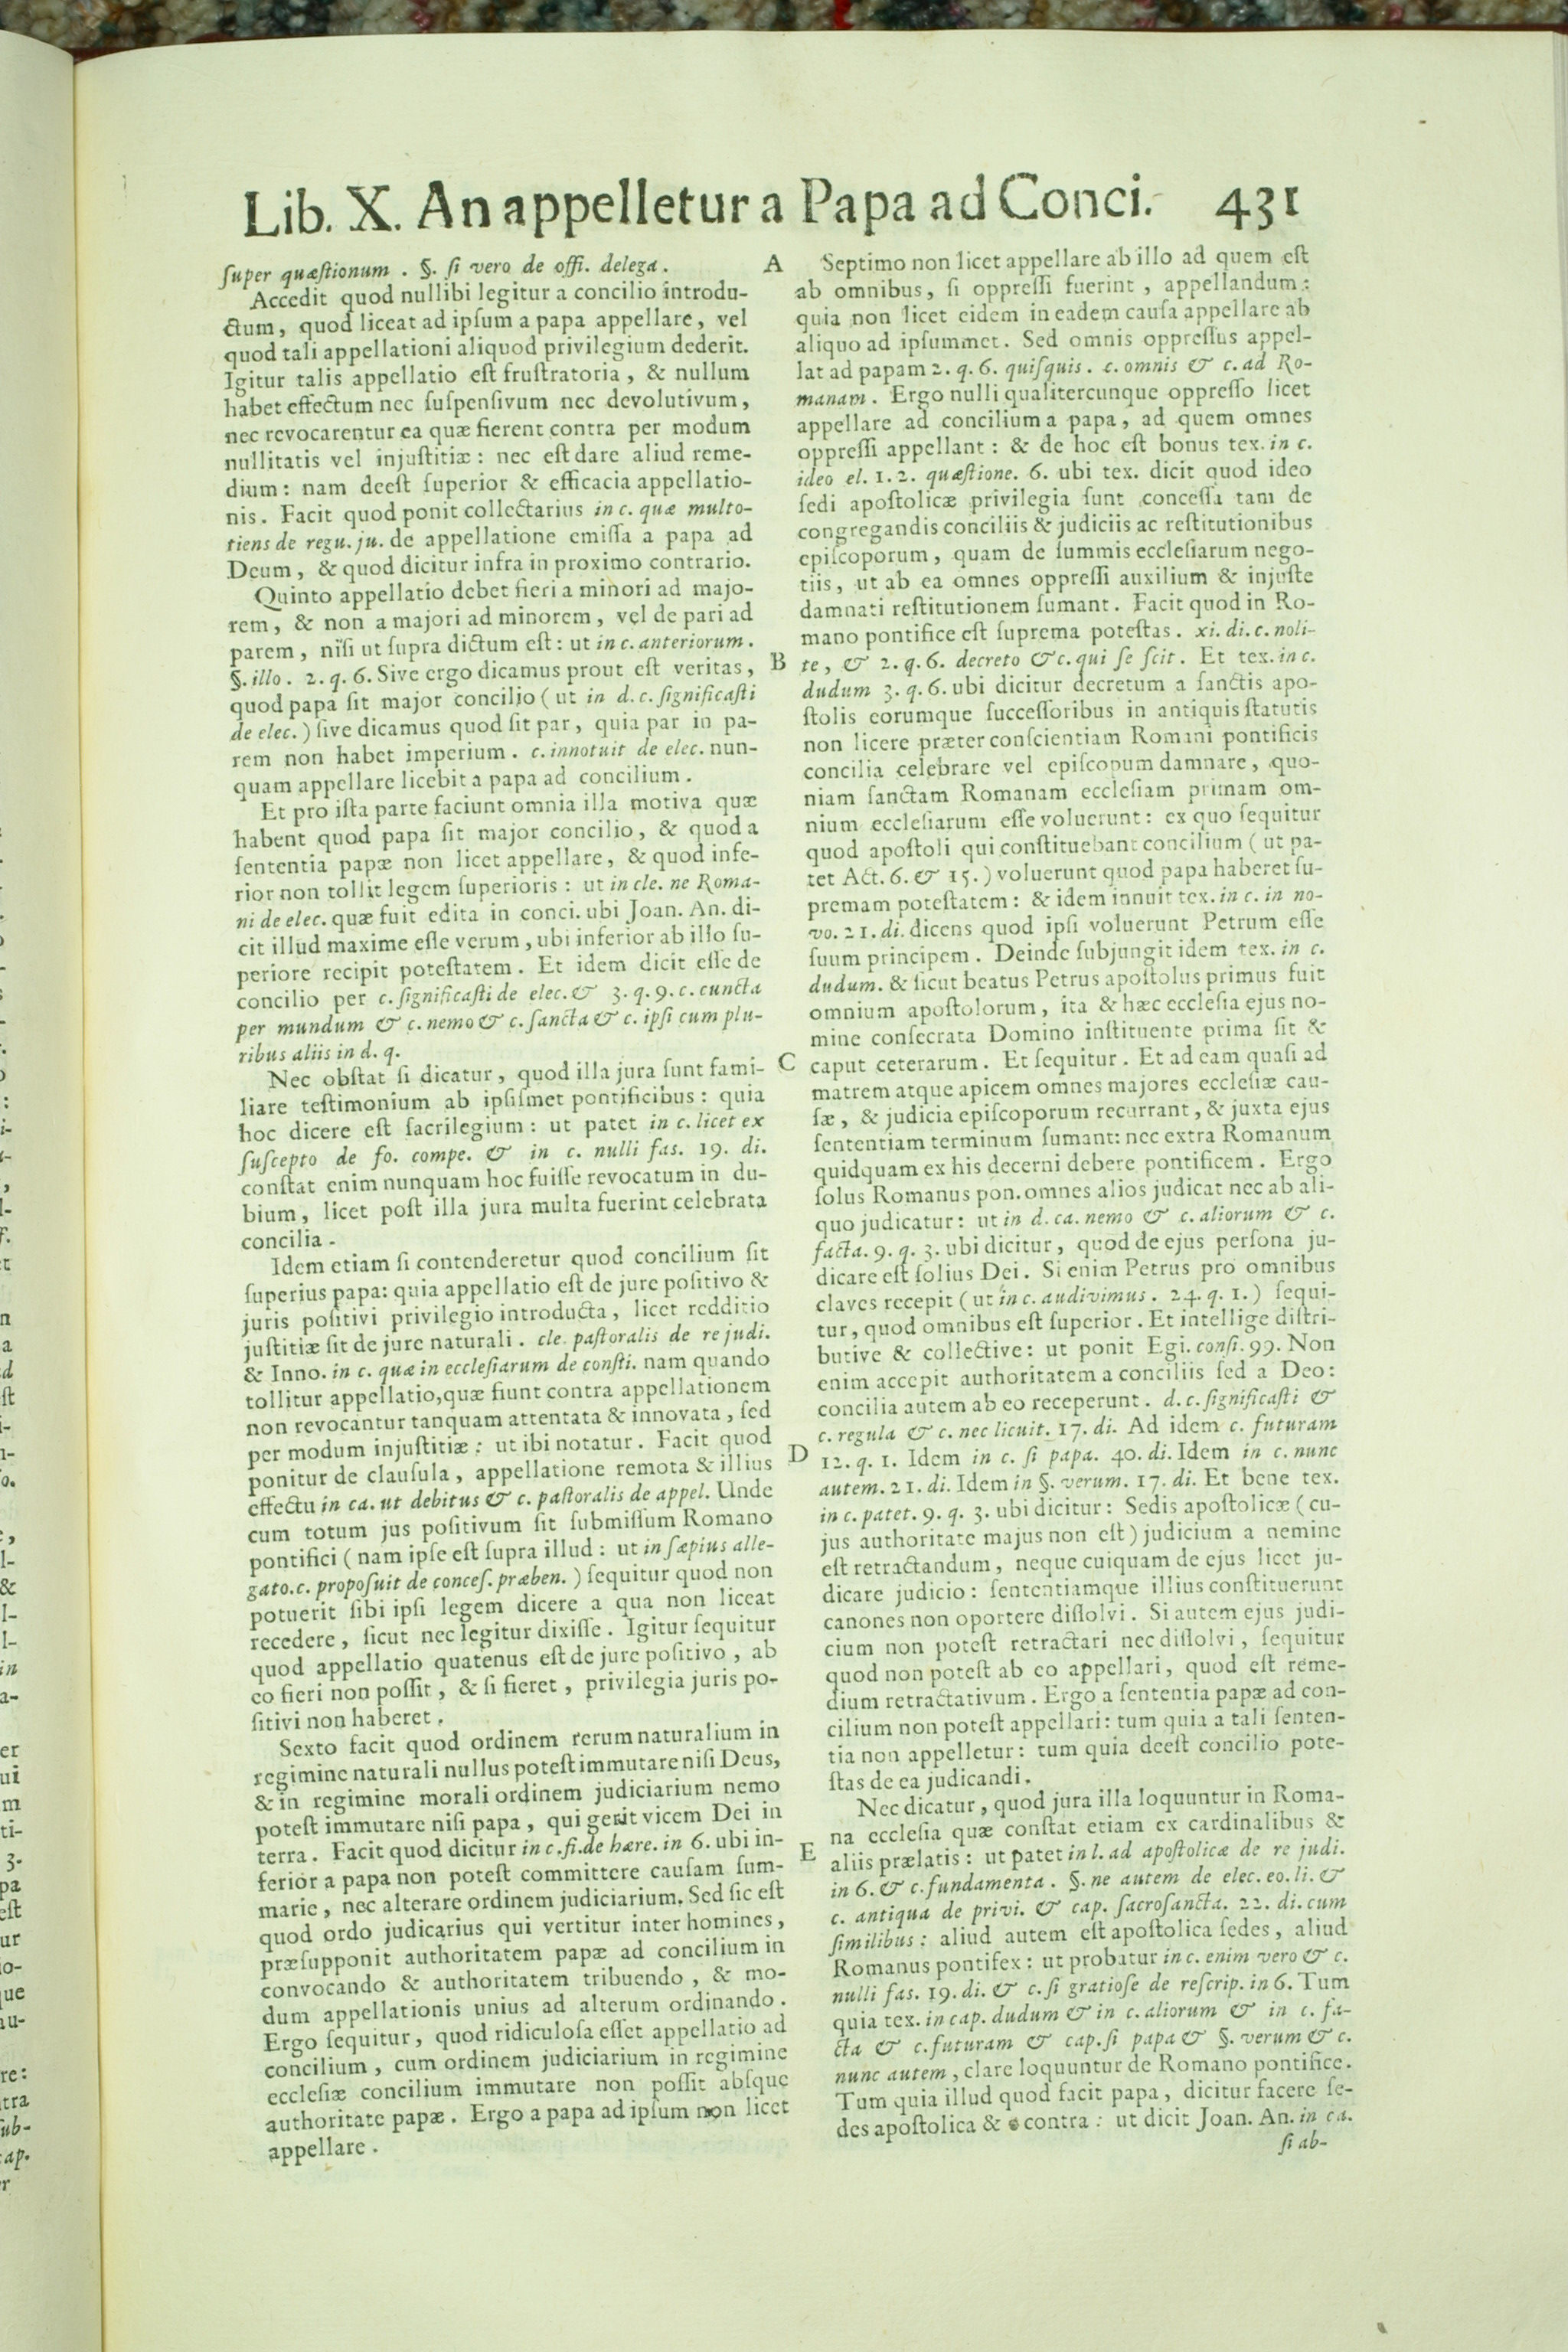 Lib. X. An appelletur a Papa ad Conci. 431
super quæstionum . §. si vero de offi. delega.
Accedit quod nullibi legitur a concilio introdu-
ctum, quod liceat ad ipsum a papa appellare, vel
quod tali appellationi aliquod privilegium dederit.
Igitur talis appellatio est frustratoria, & nullum
habet effectum nec suspensivum nec devolutivum,
nec revocarentur ea quæ fierent contra per modum
nullitatis vel injustitiæ: nec est dare aliud reme-
dium: nam deest superior & efficacia appellatio-
nis. Facit quod ponit collectarius in c. quæ multo-
tiens de regu. ju. de appellatione emissa a papa ad
Deum, & quod dicitur infra in proximo contrario.
Quinto appellatio debet fieri a minori ad majo-
rem, & non a majori ad minorem, vel de pari ad
parem, nisi ut supra dictum est: ut in c. anteriorum.
§. illo. 2. q. 6. Sive ergo dicamus prout est veritas,
quod papa sit major concilio (ut in d. c. significasti
de elec.) sive dicamus quod sit par, quia par in pa-
rem non habet imperium. c. innotuit de elec. nun-
quam appellare licebit a papa ad concilium.
Et pro ista parte faciunt omnia illa motiva quæ
habent quod papa sit major concilio, & quod a
sententia papæ non licet appellare, & quod infe-
rior non tollit legem superioris: ut in cle. ne Roma-
ni de elec. quæ fuit edita in conci. ubi Joan. An. di-
cit illud maxime esse verum, ubi inferior ab illo su-
periore recipit potestatem. Et idem dicit esse de
concilio per c. significasti de elec. & 3. q. 9. c. cuncta
per mundum & c. nemo & c. sancta & c. ipsi cum plu-
ribus aliis in d. q.
Nec obstat si dicatur, quod illa jura sunt fami-
liare testimonium ab ipsismet pontificibus: quia
hoc dicere est sacrilegium: ut patet in c. licet ex
suscepto de fo. compe. & in c. nulli fas. 19. di.
constat enim nunquam hoc fuisse revocatum in du-
bium, licet post illa jura multa fuerint celebrata
concilia.
Idem etiam si contenderetur quod concilium sit
superius papa: quia appellatio est de jure positivo &
juris positivi privilegio introducta, licet redditio
justitiæ sit de jure naturali. cle. pastoralis de re judi.
& Inno. in c. quæ in ecclesiarum de consti. nam quando
tollitur appellatio, quæ fiunt contra appellationem
non revocantur tanquam attentata & innovata, sed
per modum injustitiæ: ut ibi notatur. Facit quod
ponitur de clausula, appellatione remota & illius
effectu in ca. ut debitus & c. pastoralis de appel. Unde
cum totum jus positivum sit submissum Romano
pontifici (nam ipse est supra illud: ut in sæpius alle-
gato. c. proposuit de conces. præben.) sequitur quod non
potuerit sibi ipsi legem dicere a qua non liceat
recedere, sicut nec legitur dixisse. Igitur sequitur
quod appellatio quatenus est de jure positivo, ab
eo fieri non possit, & si fieret, privilegia juris po-
sitivi non haberet.
Sexto facit quod ordinem rerum naturalium in
regimine naturali nullus potest immutare nisi Deus,
& in regimine morali ordinem judiciarium nemo
potest immutare nisi papa, qui gerit vicem Dei in
terra. Facit quod dicitur in c. fi. de hære. in 6. ubi in-
ferior a papa non potest committere causam sum-
marie, nec alterare ordinem judiciarium. Sed sic est
quod ordo judicarius qui vertitur inter homines,
præsupponit authoritatem papæ ad concilium in
convocando & authoritatem tribuendo, & mo-
dum appellationis unius ad alterum ordinando.
Ergo sequitur, quod ridiculosa esset appellatio ad
concilium, cum ordinem judiciarium in regimine
ecclesiæ concilium immutare non possit absque
authoritate papæ. Ergo a papa ad ipsum non licet
appellare.
A
B
C
D
E
Septimo non licet appellare ab illo ad quem est
ab omnibus, si oppressi fuerint, appellandum:
quia non licet eidem in eadem causa appellare ab
aliquo ad ipsummet. Sed omnis oppressus appel-
lat ad papam 2. q. 6. quisquis. c. omnis & c. ad Ro-
manam. Ergo nulli qualitercunque oppresso licet
appellare ad concilium a papa, ad quem omnes
oppressi appellant: & de hoc est bonus tex. in c.
ideo el. 1. 2. quæstione. 6. ubi tex. dicit quod ideo
sedi apostolicæ privilegia sunt concessa tam de
congregandis conciliis & judiciis ac restitutionibus
episcoporum, quam de summis ecclesiarum nego-
tiis, ut ab ea omnes oppressi auxilium & injuste
damnati restitutionem sumant. Facit quod in Ro-
mano pontifice est suprema potestas. xi. di. c. noli-
te, & 2. q. 6. decreto & c. qui se scit. Et tex. in c.
dudum 3. q. 6. ubi dicitur decretum a sanctis apo-
stolis eorumque successoribus in antiquis statutis
non licere præter conscientiam Romani pontificis
concilia celebrare vel episcopum damnare, quo-
niam sanctam Romanam ecclesiam primam om-
nium ecclesiarum esse voluerunt: ex quo sequitur
quod apostoli qui constituebant concilium (ut pa-
tet Act. 6. & 15.) voluerunt quod papa haberet su-
premam potestatem: & idem innuit tex. in c. in no-
vo. 21. di. dicens quod ipsi voluerunt Petrum esse
suum principem. Deinde subjungit idem tex. in c.
dudum. & sicut beatus Petrus apostolus primus fuit
omnium apostolorum, ita & hæc ecclesia ejus no-
mine consecrata Domino instituente prima sit &
caput ceterarum. Et sequitur. Et ad eam quasi ad
matrem atque apicem omnes majores ecclesiæ cau-
sæ, & judicia episcoporum recurrant, & juxta ejus
sententiam terminum sumant: nec extra Romanum
quidquam ex his decerni debere pontificem. Ergo
solus Romanus pon. omnes alios judicat nec ab ali-
quo judicatur: ut in d. ca. nemo & c. aliorum & c.
facta. 9. q. 3. ubi dicitur, quod de ejus persona ju-
dicare est solius Dei. Si enim Petrus pro omnibus
claves recepit (ut in c. audivimus. 24. q. 1.) sequi-
tur, quod omnibus est superior. Et intellige distri-
butive & collective: ut ponit Egi. consi. 99. Non
enim accepit authoritatem a conciliis sed a Deo:
concilia autem ab eo receperunt. d. c. significasti &
c. regula & c. nec licuit. 17. di. Ad idem c. futuram
12. q. 1. Idem in c. si papa. 40. di. Idem in c. nunc
autem. 21. di. Idem in §. verum. 17. di. Et bene tex.
in c. patet. 9. q. 3. ubi dicitur: Sedis apostolicæ (cu-
jus authoritate majus non est) judicium a nemine
est retractandum, neque cuiquam de ejus licet ju-
dicare judicio: sententiamque illius constituerunt
canones non oportere dissolvi. Si autem ejus judi-
cium non potest retractari nec dissolvi, sequitur
quod non potest ab eo appellari, quod est reme-
dium retractativum. Ergo a sententia papæ ad con-
cilium non potest appellari: tum quia a tali senten-
tia non appelletur: tum quia deest concilio pote-
stas de ea judicandi.
Nec dicatur, quod jura illa loquuntur in Roma-
na ecclesia quæ constat etiam ex cardinalibus &
aliis prælatis: ut patet in l. ad apostolicæ de re judi.
in 6. & c. fundamenta. §. ne autem de elec. eo. li. &
c. antiqua de privi. & cap. sacrosancta. 22. di. cum
similibus: aliud autem est apostolica sedes, aliud
Romanus pontifex: ut probatur in c. enim vero & c.
nulli fas. 19. di. & c. si gratiose de rescrip. in 6. Tum
quia tex. in cap. dudum & in c. aliorum & in c. fa-
cta & c. futuram & cap. si papa & §. verum & c.
nunc autem, clare loquuntur de Romano pontifice.
Tum quia illud quod facit papa, dicitur facere se-
des apostolica & e contra: ut dicit Joan. An. in ca.
si ab-